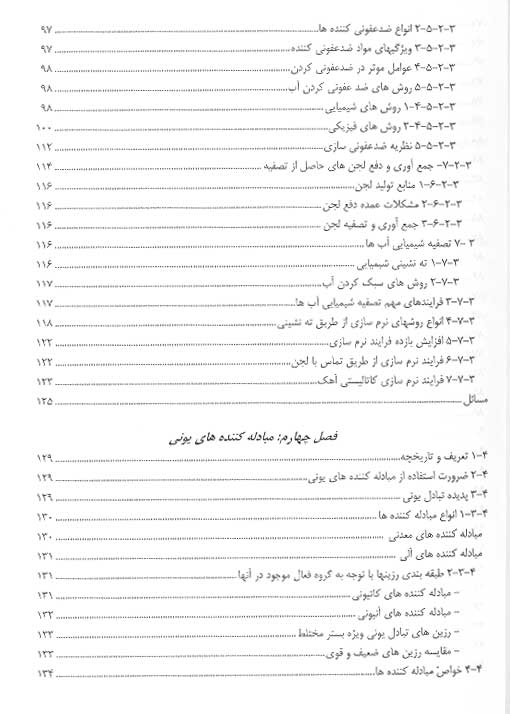 ۳-۲-۵-۲ انواع ضدعفونی کننده ها ۹۷
۳-۲-۵-۳ ویژگیهای مواد ضدعفونی کننده ۹۷
۳-۲-۵-۴ عوامل موثر در ضدعفونی کردن ۹۸
۳-۲-۵-۵ روش های ضد عفونی کردن آب ۹۸
۳-۲-۵-۴-۱ روش های شیمیایی ۹۸
۳-۲-۵-۴-۳ روش های فیزیکی ۱۰۰
۳-۲-۵-۵ نظریه ضدعفونی سازی ۱۱۲
۳-۲-۷- جمع آوری و دفع لجن های حاصل از تصفیه ۱۱۴
۳-۲-۶-۱ منابع تولید لجن ۱۱۶
۳-۲-۶-۲ مشکلات عمده دفع لجن ۱۱۶
۳-۲-۶-۳ جمع آوری و تصفیه لجن ۱۱۶
۳ -۷ تصفیه شیمیایی آب ها ۱۱۶
۳-۷-۱ ته نشینی شیمیایی ۱۱۶
۳-۷-۲ روش های سبک کردن آب ۱۱۷
۳-۷-۳ فرایندهای مهم تصفیه شیمیایی آب ها ۱۱۷
۳-۷-۴ انواع روشهای نرم سازی از طریق ته نشینی ۱۱۸
۳-۷-۵ افزایش بازده فرایند نرم سازی ۱۲۲
۳-۷-۶ فرایند نرم سازی از طریق تماس با لجن ۱۲۲
۳-۷-۷ فرایند نرم سازی کاتالیستی آهک ۱۲۳
مسائل ۱۲۵
فصل چهارم: مبادله کننده های یونی
۴-۱ تعریف و تاریخچه ۱۲۹
۴-۲ ضرورت استفاده از مبادله کننده های یونی ۱۲۹
۴-۳ پدیده تبادل یونی ۱۲۹
۴-۳-۱ انواع مبادله کننده ها ۱۳۰
مبادله کننده های معدنی ۱۳۰
مبادله کننده های آلی ۱۳۱
۴-۳-۲ طبقه بندی رزینها با توجه به گروه فعال موجود در آنها ۱۳۱
- مبادله کننده های کاتیونی ۱۳۱
- مبادله کننده های آنیونی ۱۳۲
- رزین های تبادل یونی ویژه بستر مختلط ۱۳۳
- مقایسه رزین های ضعیف و قوی ۱۳۳
۴-۴ خواص مبادله کننده ها ۱۳۴